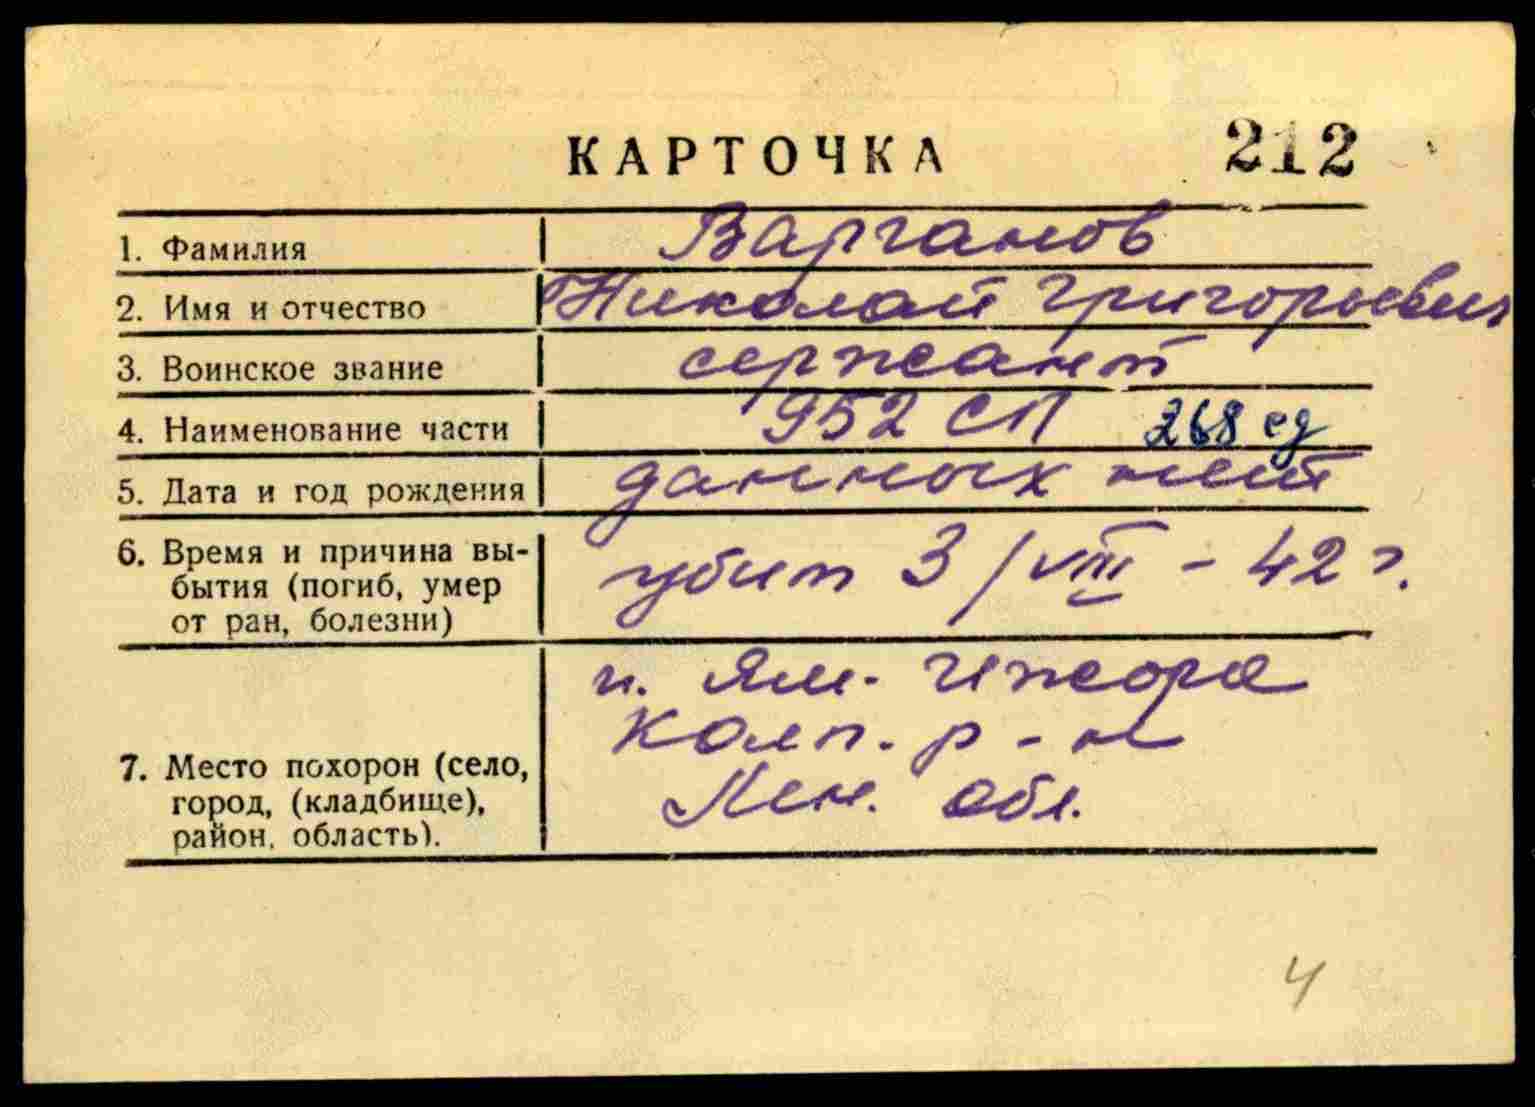 КАРТОЧКА 212
1. Фамилия Варганов
2. Имя и отчество Николай Григорьевич
3. Воинское звание сержант
4. Наименование части 952 СП 268 сд
5. Дата и год рождения данных нет
6. Время и причина вы-
бытия (погиб, умер
от ран, болезни)
убит 3/VIII - 42 г.
п. Ям. Ижора
Колп. р-н
Лен. обл.
7. Место похорон (село,
город, (кладбище),
район, область).
4